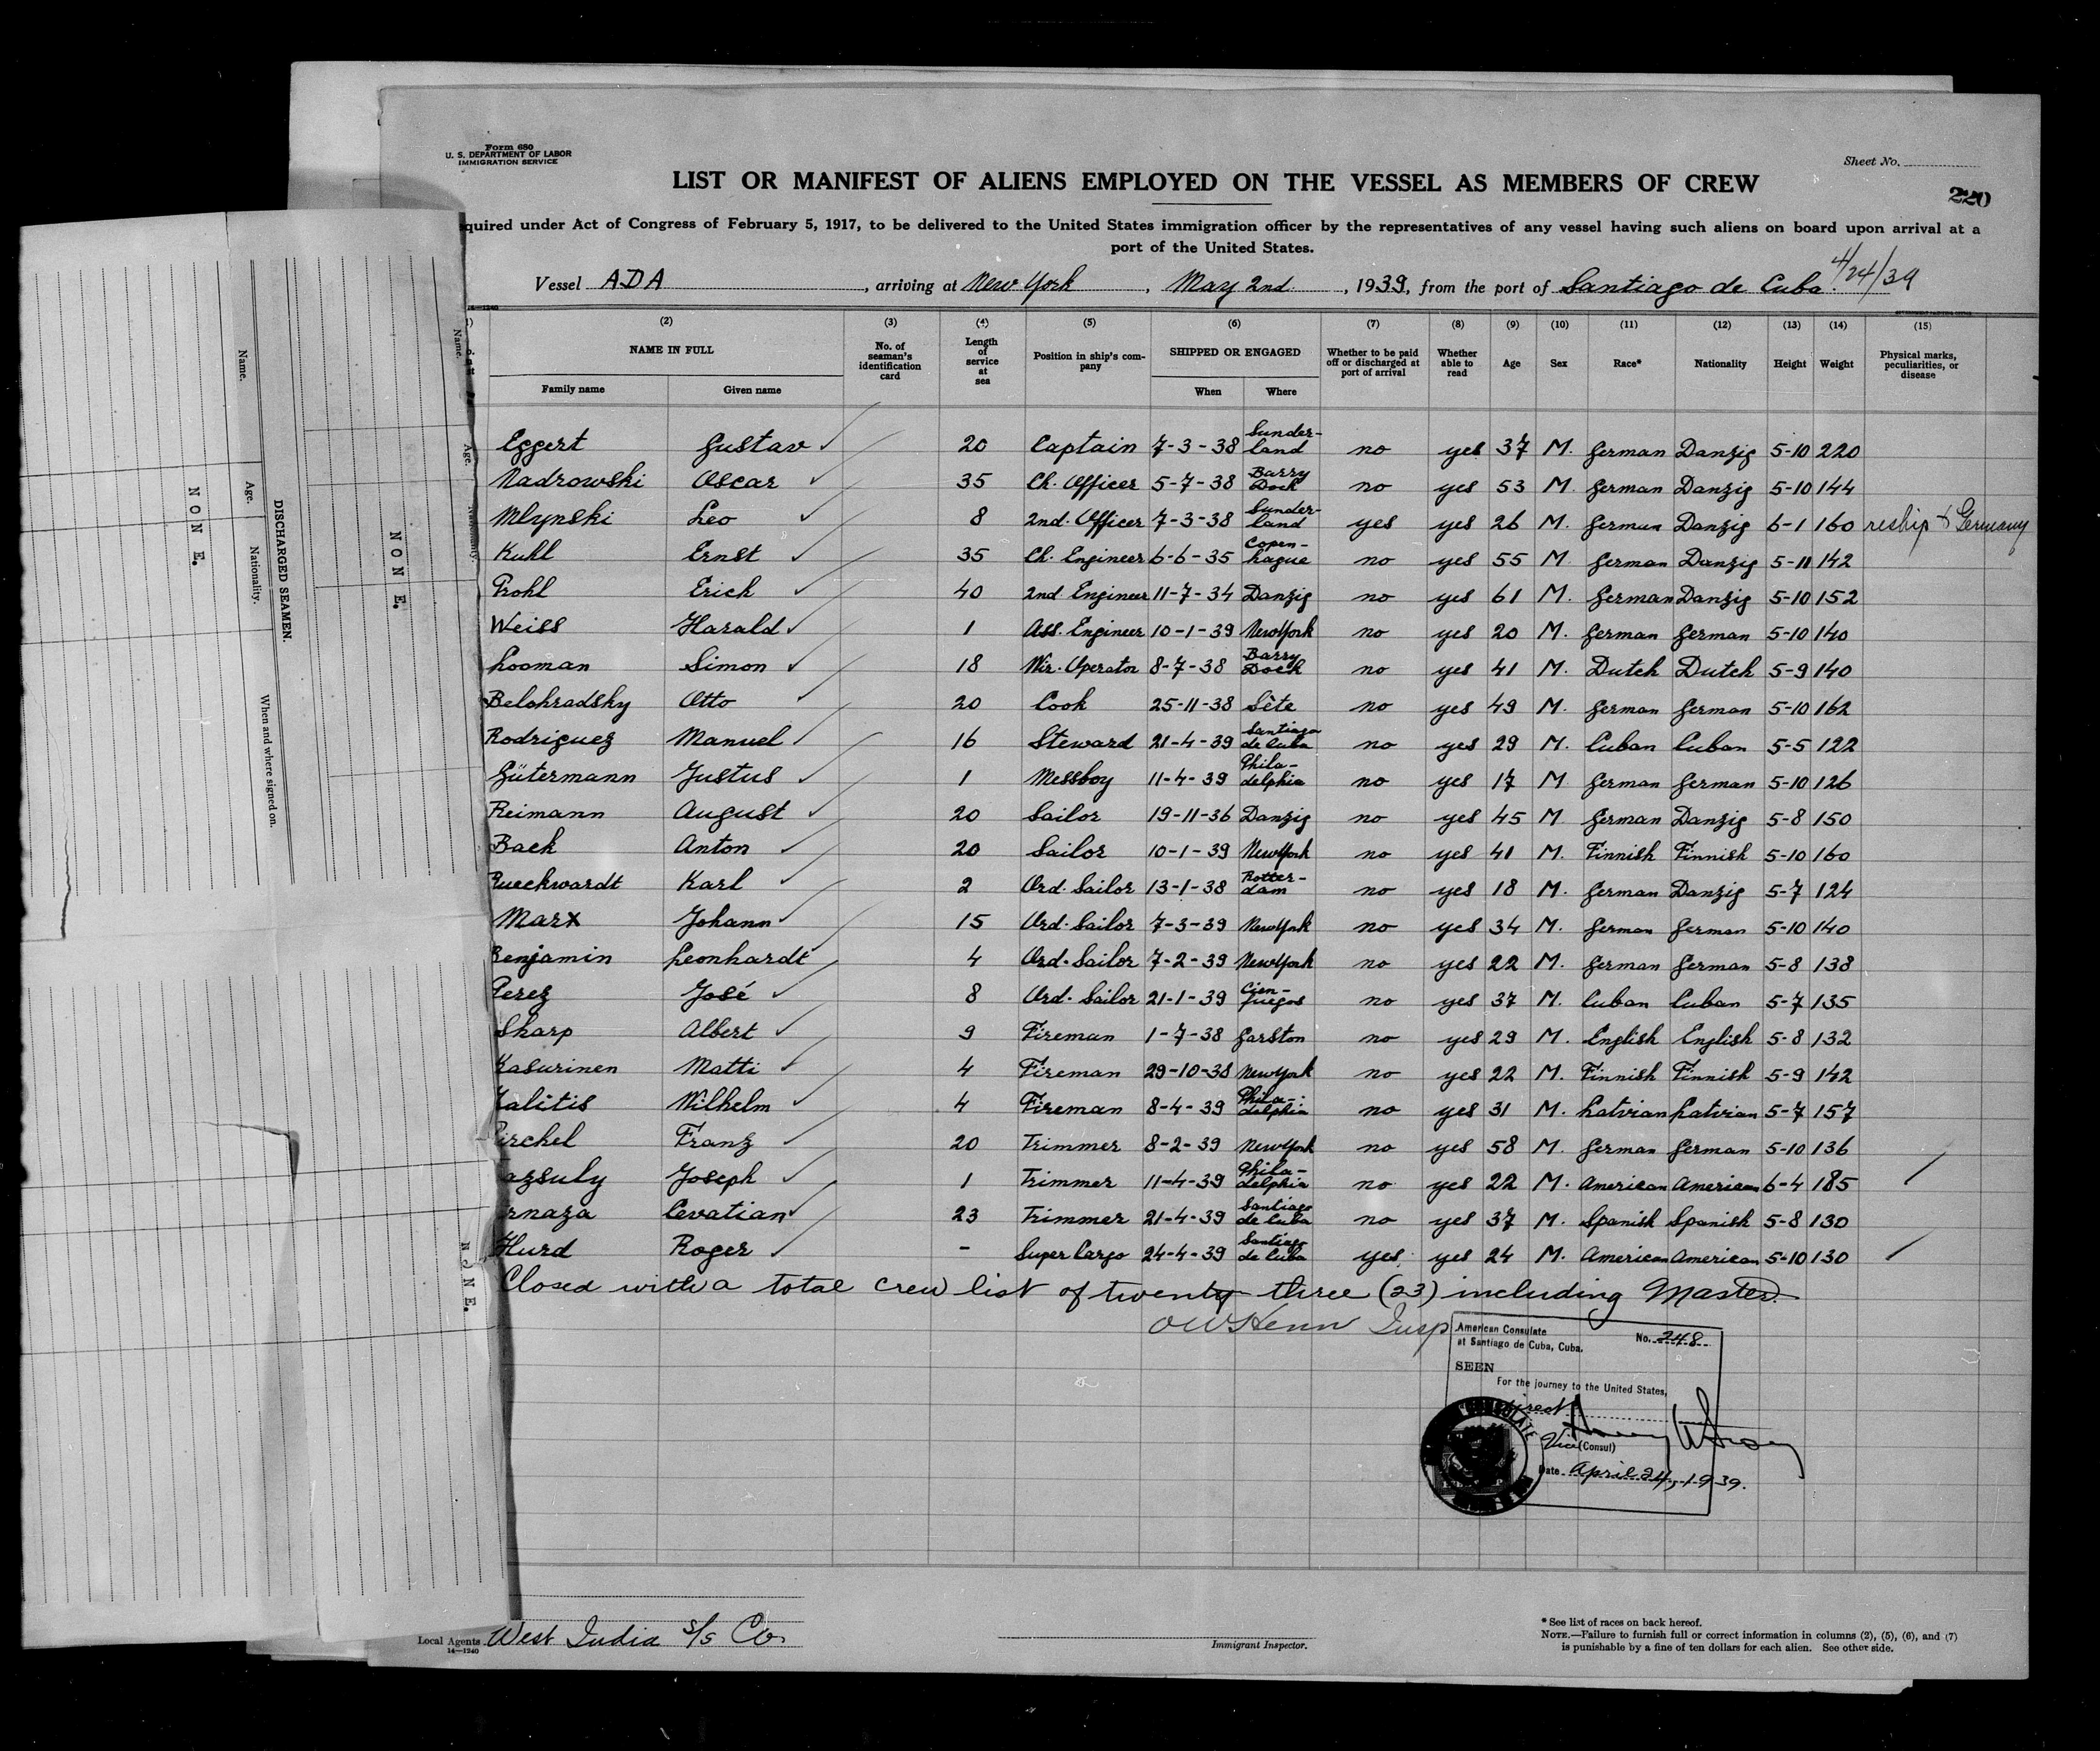 Form 680
U. S. DEPARTMENT OF LABOR
IMMIGRATION SERVICE
Sheet No.
220
LIST OR MANIFEST OF ALIENS EMPLOYED ON THE VESSEL AS MEMBERS OF CREW
quired under Act of Congress of February 5, 1917, to be delivered to the United States immigration officer by the representatives of any vessel having such aliens on board upon arrival at a
port of the United States.
Vessel ADA, arriving at New York, May 2nd, 1939, from the port of Santiago de Cuba. 4/24/39
(2) (3) (4) (5) (6) (7) (8) (9) (10) (11) (12) (13) (14) (15)
NAME IN FULL
Family name Given name
No. of seaman's identification card
Length of service at sea
Position in ship's company
SHIPPED OR ENGAGED
When Where
Whether to be paid off or discharged at port of arrival
Whether able to read
Age
Sex
Race*
Nationality
Height
Weight
Physical marks, peculiarities, or disease
Eggert Gustav 20 Captain 7-3-38 Sunderland no yes 37 M. German Danzig 5-10 220
Nadrowski Oscar 35 Ch. Officer 5-7-38 Barry Dock no yes 53 M. German Danzig 5-10 144
Mlynski Leo 8 2nd. Officer 7-3-38 Sunderland yes yes 26 M. German Danzig 6-1 160 reship Germany
Kuhl Ernst 35 Ch. Engineer 6-6-35 Copenhague no yes 55 M. German Danzig 5-11 142
Prohl Erich 40 2nd Engineer 11-7-34 Danzig no yes 61 M. German Danzig 5-10 152
Weiss Harald 1 Ass. Engineer 10-1-39 New York no yes 20 M. German German 5-10 140
Looman Simon 18 Wir. Operator 8-7-38 Barry Dock no yes 41 M. Dutch Dutch 5-9 140
Belohradsky Otto 20 Cook 25-11-38 Sète no yes 49 M. German German 5-10 162
Rodriguez Manuel 16 Steward 21-4-39 Santiago de Cuba no yes 29 M. Cuban Cuban 5-5 122
Gütermann Justus 1 Messboy 11-4-39 Philadelphia no yes 17 M. German German 5-10 126
Reimann August 20 Sailor 19-11-36 Danzig no yes 45 M German Danzig 5-8 150
Back Anton 20 Sailor 10-1-39 New York no yes 41 M. Finnish Finnish 5-10 160
Rueckwardt Karl 2 Ord. Sailor 13-1-38 Rotterdam no yes 18 M. German Danzig 5-7 124
Marx Johann 15 Ord. Sailor 7-3-39 New York no yes 34 M. German German 5-10 140
Benjamin Leonhardt 4 Ord. Sailor 7-2-39 New York no yes 22 M. German German 5-8 138
Perez José 8 Ord. Sailor 21-1-39 Cienfuegos no yes 37 M. Cuban Cuban 5-7 135
Sharp Albert 9 Fireman 1-7-38 Garston no yes 29 M. English English 5-8 132
Kasurinen Matti 4 Fireman 29-10-38 New York no yes 22 M. Finnish Finnish 5-9 142
alitis Wilhelm 4 Fireman 8-4-39 Philadelphia no yes 31 M. Latvian Latvian 5-7 157
irchel Franz 20 Trimmer 8-2-39 New York no yes 58 M. German German 5-10 136
azsuly Joseph 1 Trimmer 11-4-39 Philadelphia no yes 22 M. American American 6-4 185
rnaza Cevatian 23 Trimmer 21-4-39 Santiago de Cuba no yes 37 M. Spanish Spanish 5-8 130
Hurd Roger - Super Cargo 24-4-39 Santiago de Cuba yes yes 24 M. American American 5-10 130
Closed with a total crew list of twenty three (23) including Master.
OW Henn Insp
American Consulate
at Santiago de Cuba, Cuba.
No. 248
SEEN
For the journey to the United States,
direct
Vice (Consul)
Date April 24, 1939.
CONSULATE
Local Agents West India S/S Co.
14—1240
Immigrant Inspector.
* See list of races on back hereof.
NOTE.—Failure to furnish full or correct information in columns (2), (5), (6), and (7)
is punishable by a fine of ten dollars for each alien. See other side.
DISCHARGED SEAMEN.
Name. Age. Nationality. When and where signed on.
NONE.
NONE.
Name. Age. Nationality.
NONE.